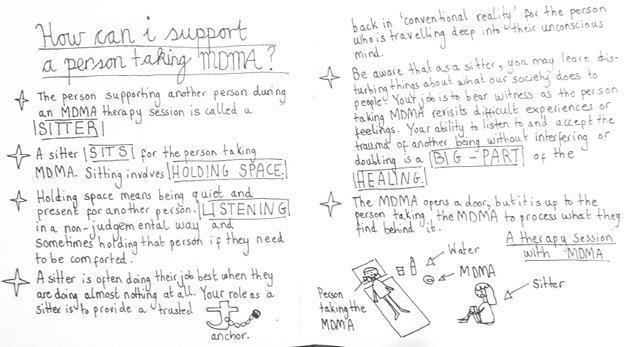 How can i support
a person taking MDMA?
The person supporting another person during
an MDMA therapy session is called a
SITTER
A sitter SITS for the person taking
MDMA. Sitting involves HOLDING SPACE.
Holding space means being quiet and
present for another person. LISTENING
in a non-judgemental way and
sometimes holding that person if they need
to be comforted.
A sitter is often doing their job best when they
are doing almost nothing at all. Your role as a
sitter is to provide a trusted
anchor.
back in 'conventional reality' for the person
who is travelling deep into their unconscious
mind.
Be aware that as a sitter, you may learn dis-
turbing things about what our society does to
people. Your job is to bear witness as the person
taking MDMA revisits difficult experiences or
feelings. Your ability to listen to and accept the
trauma of another being without interfering or
doubting is a BIG-PART of the
HEALING.
The MDMA opens a door, but it is up to the
person taking the MDMA to process what they
find behind it.
A therapy session
with MDMA
Water
MDMA
Sitter
Person
taking the
MDMA